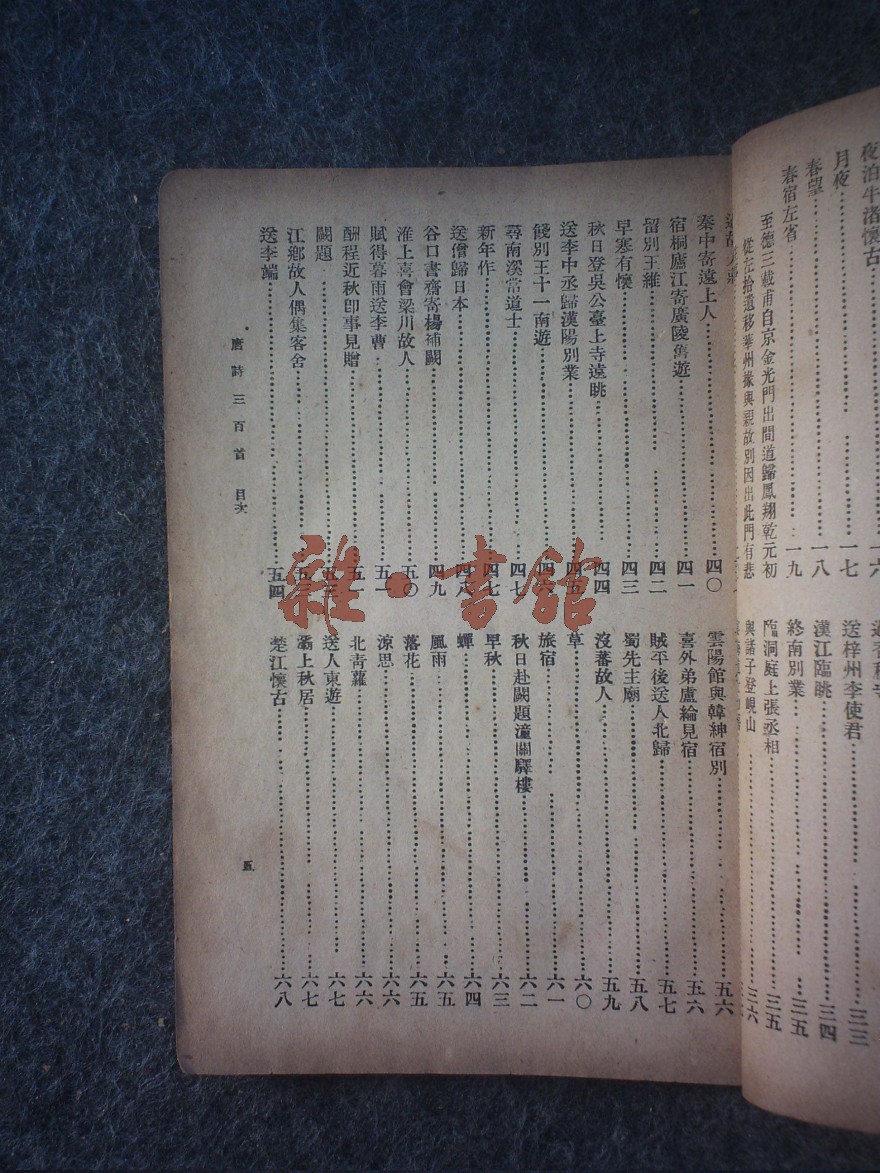 夜泊牛渚懷古 一六
月夜 一七
春望 一八
春宿左省 一九
至德三載甫自京金光門出間道歸鳳翔乾元初
從左拾遺移華州掾與親故別因出此門有悲
送梓州李使君 三三
漢江臨眺 三四
終南別業 三五
臨洞庭上張丞相 三五
與諸子登峴山 三六
秦中寄遠上人 四〇
宿桐廬江寄廣陵舊遊 四一
留別王維 四二
早寒有懷 四三
秋日登吳公臺上寺遠眺 四四
送李中丞歸漢陽別業 四五
餞別王十一南遊 四六
尋南溪常道士 四七
新年作 四七
送僧歸日本 四八
谷口書齋寄楊補闕 四九
淮上喜會梁川故人 五〇
賦得暮雨送李曹 五一
酬程近秋卽事見贈 五一
闕題
江鄉故人偶集客舍
送李端 五四
雲陽館與韓紳宿別 五六
喜外弟盧綸見宿 五六
賊平後送人北歸 五七
蜀先主廟 五八
沒蕃故人 五九
草 六〇
旅宿 六一
秋日赴闕題潼關驛樓 六二
早秋 六三
蟬 六四
風雨 六五
落花 六五
涼思 六六
北青蘿 六六
送人東遊 六七
灞上秋居 六七
楚江懷古 六八
唐詩三百首 目次
五
雜·書館